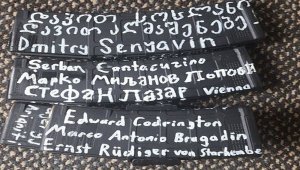 დავით სოსლანი
დავით
Dmitry Senyavin
Şerban Cantacuzino
Марко Миљанов Попови
СТЕФАН ЛАЗАР Vienna
Edward Codrington
Marco Antonio Bragadin
Ernst Rüdiger von Starhembe